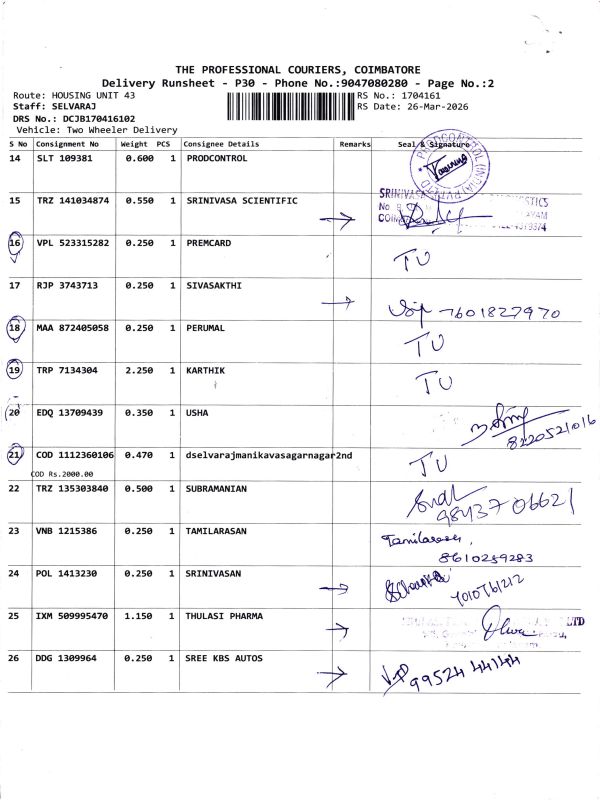 THE PROFESSIONAL COURIERS, COIMBATORE
Delivery Runsheet - P30 - Phone No.:9047080280 - Page No.:2
Route: HOUSING UNIT 43 RS No.: 1704161
Staff: SELVARAJ RS Date: 26-Mar-2026
DRS No.: DCJB170416102
Vehicle: Two Wheeler Delivery
S No Consignment No Weight PCS Consignee Details Remarks Seal & Signature
14 SLT 109381 0.600 1 PRODCONTROL
15 TRZ 141034874 0.550 1 SRINIVASA SCIENTIFIC
16 VPL 523315282 0.250 1 PREMCARD TU
17 RJP 3743713 0.250 1 SIVASAKTHI 7601827970
18 MAA 872405058 0.250 1 PERUMAL TU
19 TRP 7134304 2.250 1 KARTHIK TU
20 EDQ 13709439 0.350 1 USHA 8220521016
21 COD 1112360106 0.470 1 dselvarajmanikavasagarnagar2nd TU
COD Rs.2000.00
22 TRZ 135303840 0.500 1 SUBRAMANIAN 98437 06621
23 VNB 1215386 0.250 1 TAMILARASAN Tamilarasan,
8610259283
24 POL 1413230 0.250 1 SRINIVASAN
25 IXM 509995470 1.150 1 THULASI PHARMA LTD
26 DDG 1309964 0.250 1 SREE KBS AUTOS 99524 44144